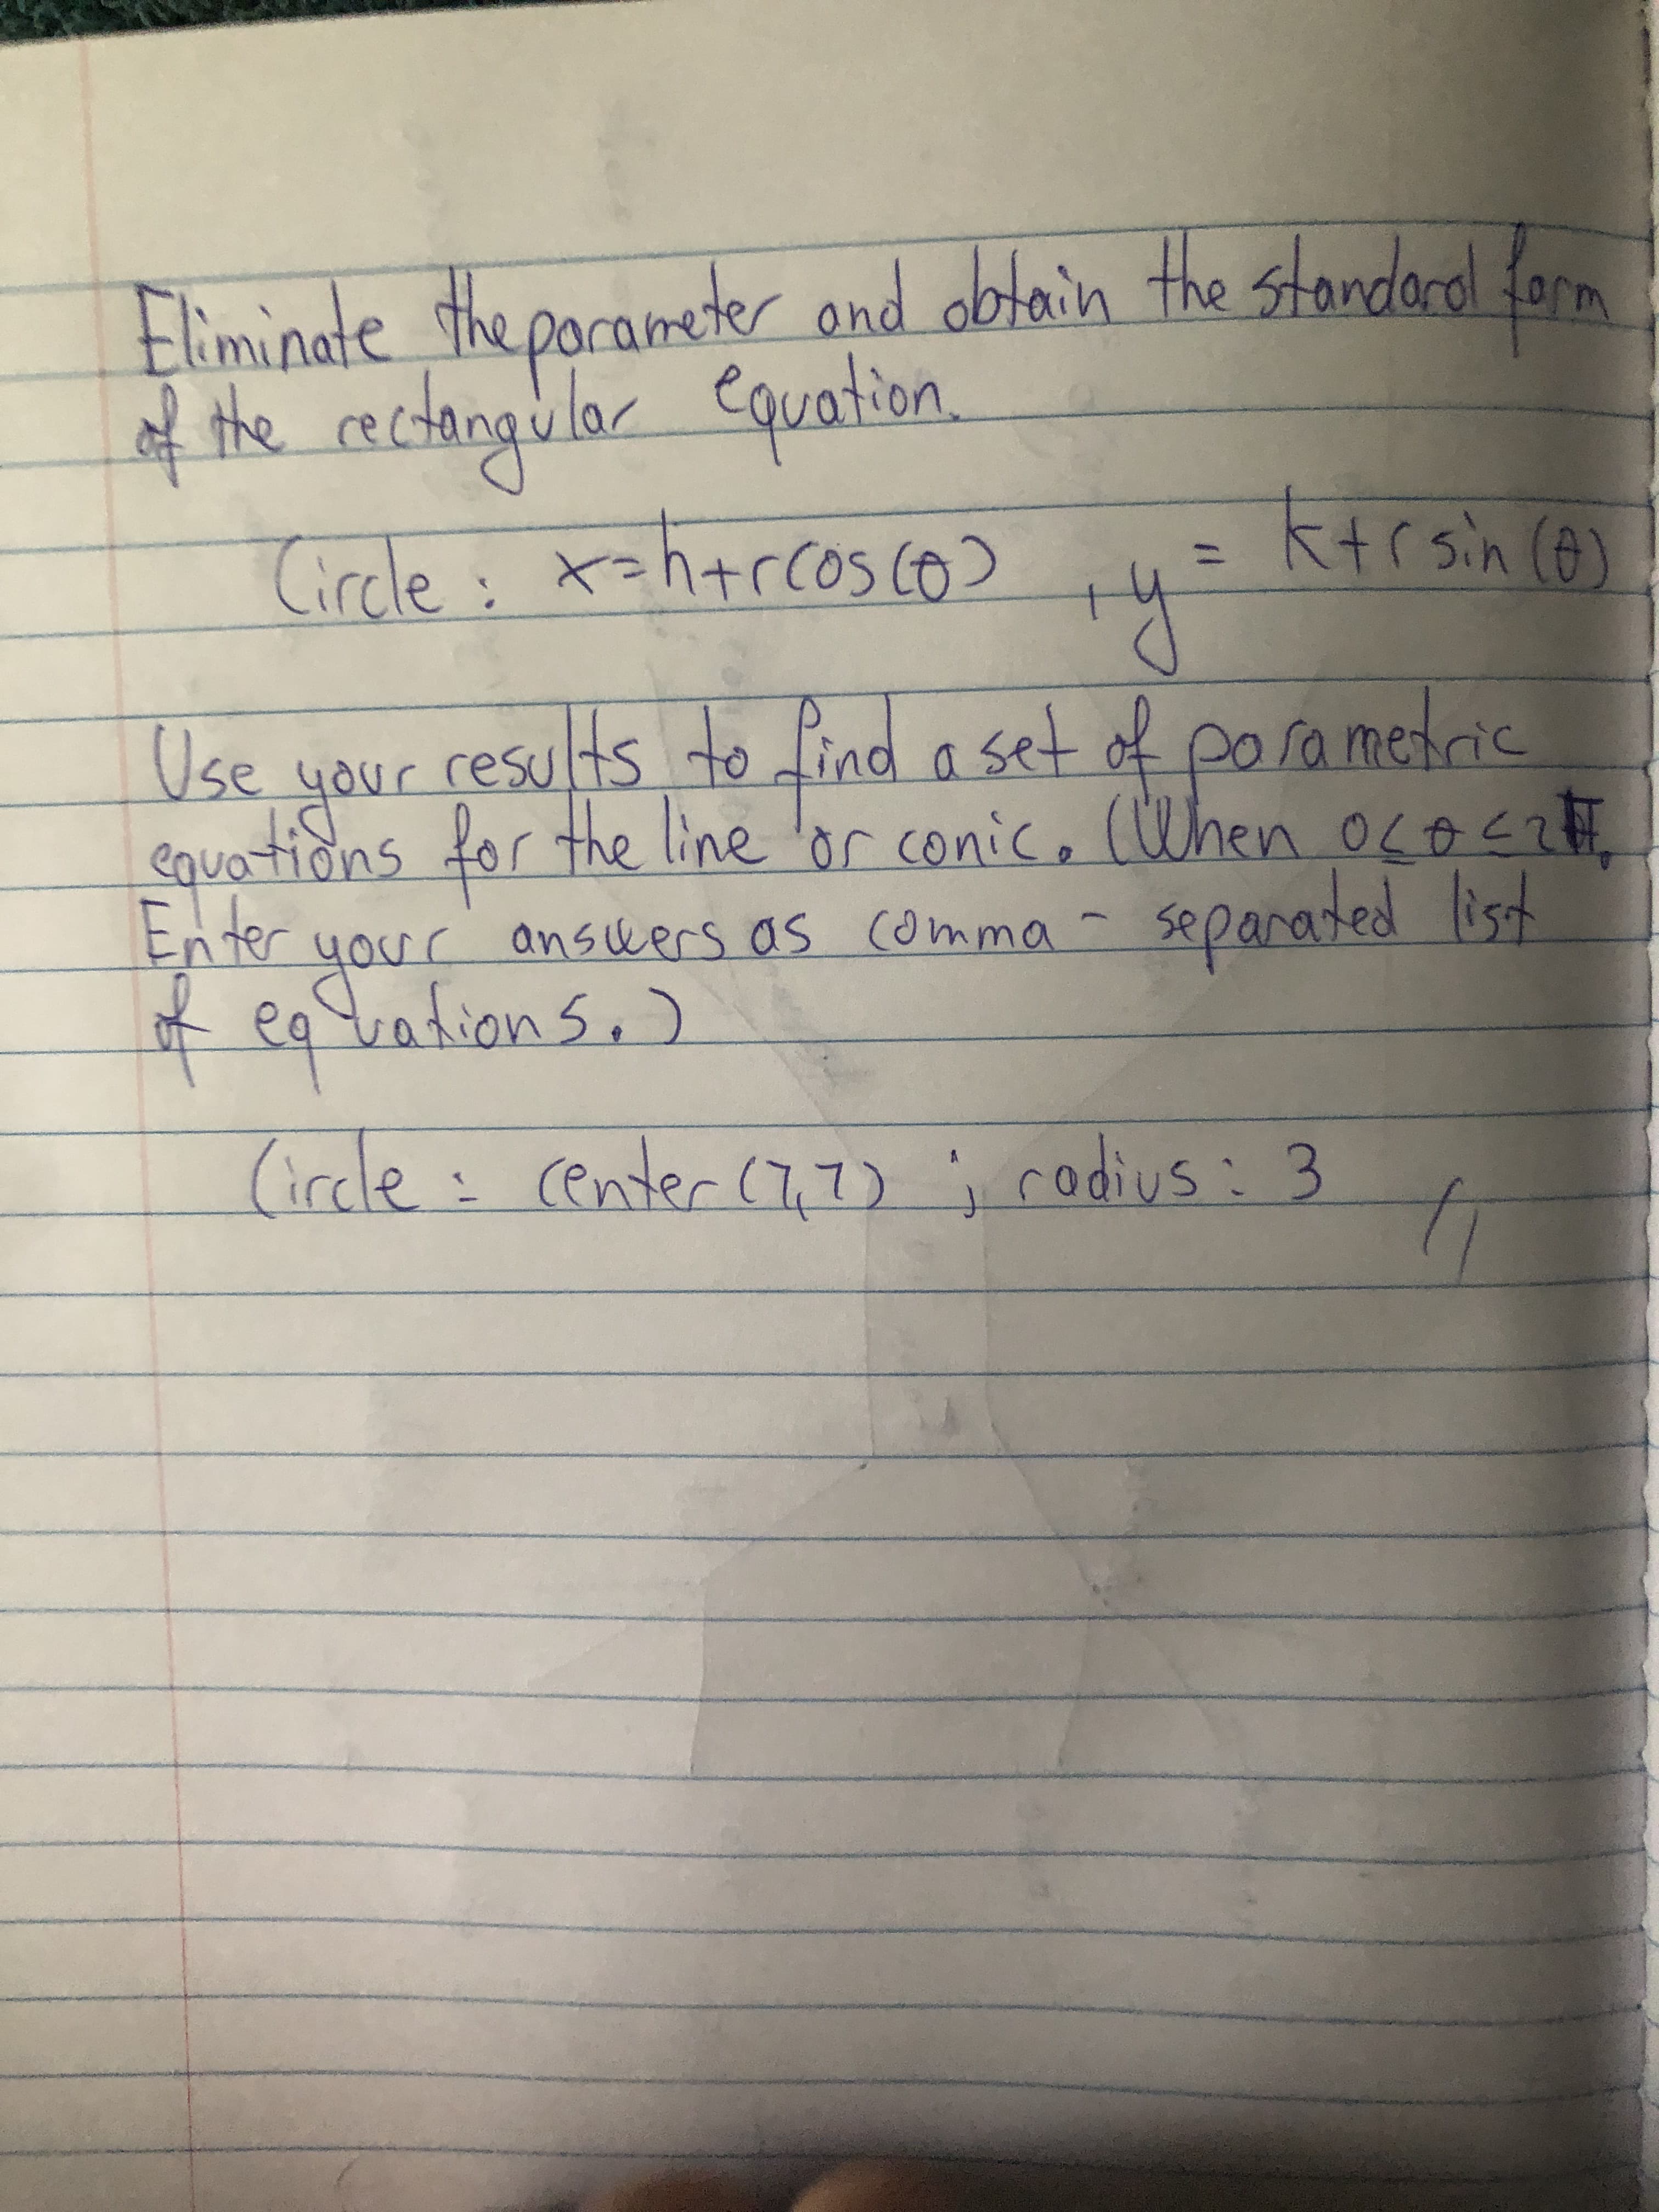 Eliminate the parameter and obtain the standard form
of the rectangular equation.
Circle : x=h+rcos(θ) , y = k+rsin(θ)
Use your results to find a set of parametric
equations for the line or conic. (When 0≤θ≤2π.
Enter your answers as comma - separated list
of equations.)
Circle : center (7,7) ; radius: 3